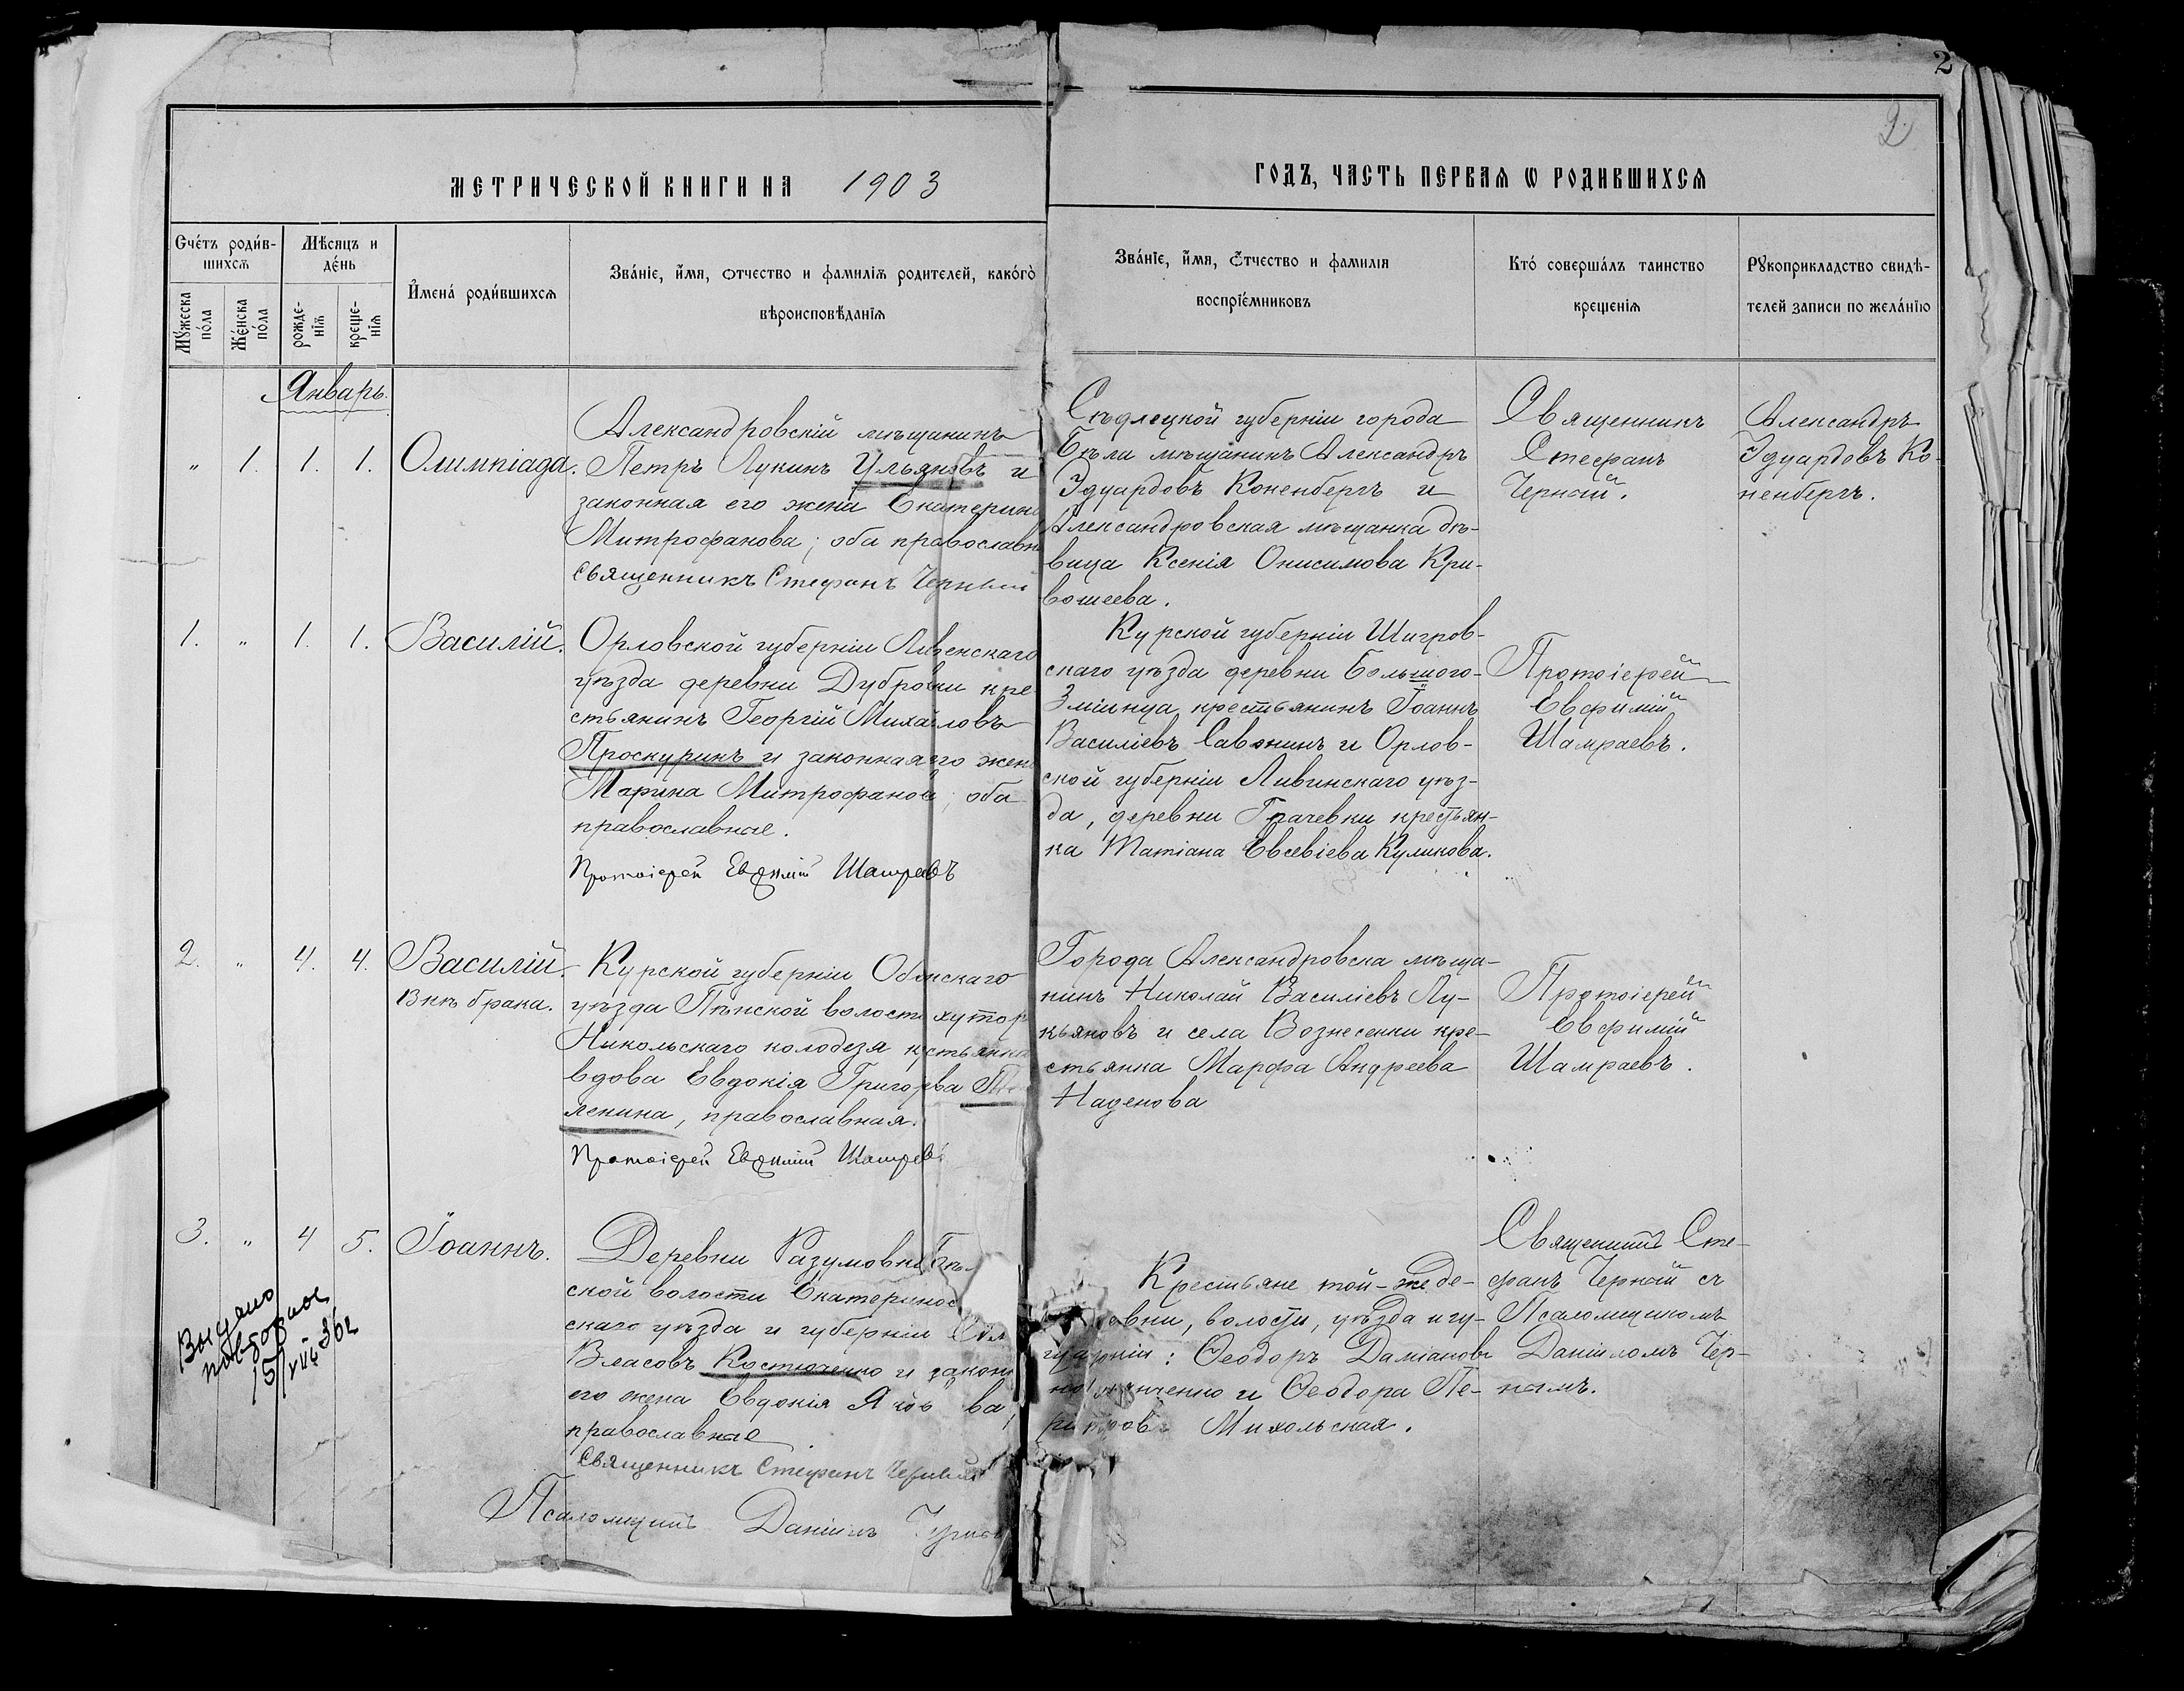 2
2
МЕТРИЧЕСКОЙ КНИГИ НА 1903
ГОДЪ, ЧАСТЬ ПЕРВАЯ Ѡ РОДИВШИХСЯ
Счетъ родив-
шихся
Мужеска
пола
Женска
пола
Мѣсяцъ и
день
рожде-
нія
креще-
нія
Имена родившихся
Званіе, имя, отчество и фамилія родителей, какого
вѣроисповѣданія
Званіе, имя, отчество и фамилія
воспріемниковъ
Кто совершалъ таинство
крещенія
Рукоприкладство свидѣ-
телей записи по желанію
Январь.
" 1. 1. 1. Олимпіада.
Александровскій мѣщанинъ
Петръ Лукинъ Ульяновъ и
законная его жена Екатерина
Митрофанова; оба православн
Священникъ Стефанъ Черный
Сѣдлецкой губерніи города
Бѣли мѣщанинъ Александръ
Эдуардовъ Коненбергъ и
Александровская мѣщанка дѣ-
вица Ксенія Онисимова Кри-
вошеева.
Священникъ
Стефанъ
Черный.
Александръ
Эдуардовъ Ко-
ненбергъ.
1. " 1. 1. Василій.
Орловской губерніи Ливенскаго
уѣзда деревни Дубровки кре
стьянинъ Георгій Михайловъ
Проскуринъ и законная его жена
Марина Митрофанова; оба
православные.
Протоіерей Евфимій Шамраевъ
Курской губерніи Щигров-
скаго уѣзда деревни Большого-
Зміинца крестьянинъ Іоаннъ
Василіевъ Савонинъ и Орлов-
ской губерніи Ливинскаго уѣз-
да, деревни Грачевки крестьян-
ка Татіана Евсевіева Куликова.
Протоіерей
Евфимій
Шамраевъ.
2. " 4. 4. Василій.
Внѣ брака.
Курской губерніи Обоянскаго
уѣзда Пѣнской волости хутор
Никольскаго колодезя крестьянка
вдова Евдокія Григорьева
ленина, православная.
Протоіерей Евфимій Шамраевъ
Города Александровска мѣща-
нинъ Николай Василіевъ Лу-
кьяновъ и села Вознесенки кре-
стьянка Марфа Андреева
Наденова
Протоіерей
Евфимій
Шамраевъ.
3. " 4 5. Іоаннъ.
Деревни Разумовки
ской волости Екатеринос
скаго уѣзда и губерніи
Власовъ Костюченко и закон
его жена Евдокія Яковлева,
православные.
Священникъ Стефанъ Черный
Псаломщикъ Даніилъ
Крестьяне той-же де-
ревни, волости, уѣзда и гу-
берніи: Ѳеодоръ Даміановъ
и Ѳеодора Пе-
Михольская.
Священникъ Сте-
фанъ Черный съ
Псаломщикомъ
Даніиломъ Чер-
нымъ.
Выдано
повторное
15/VIII 36г